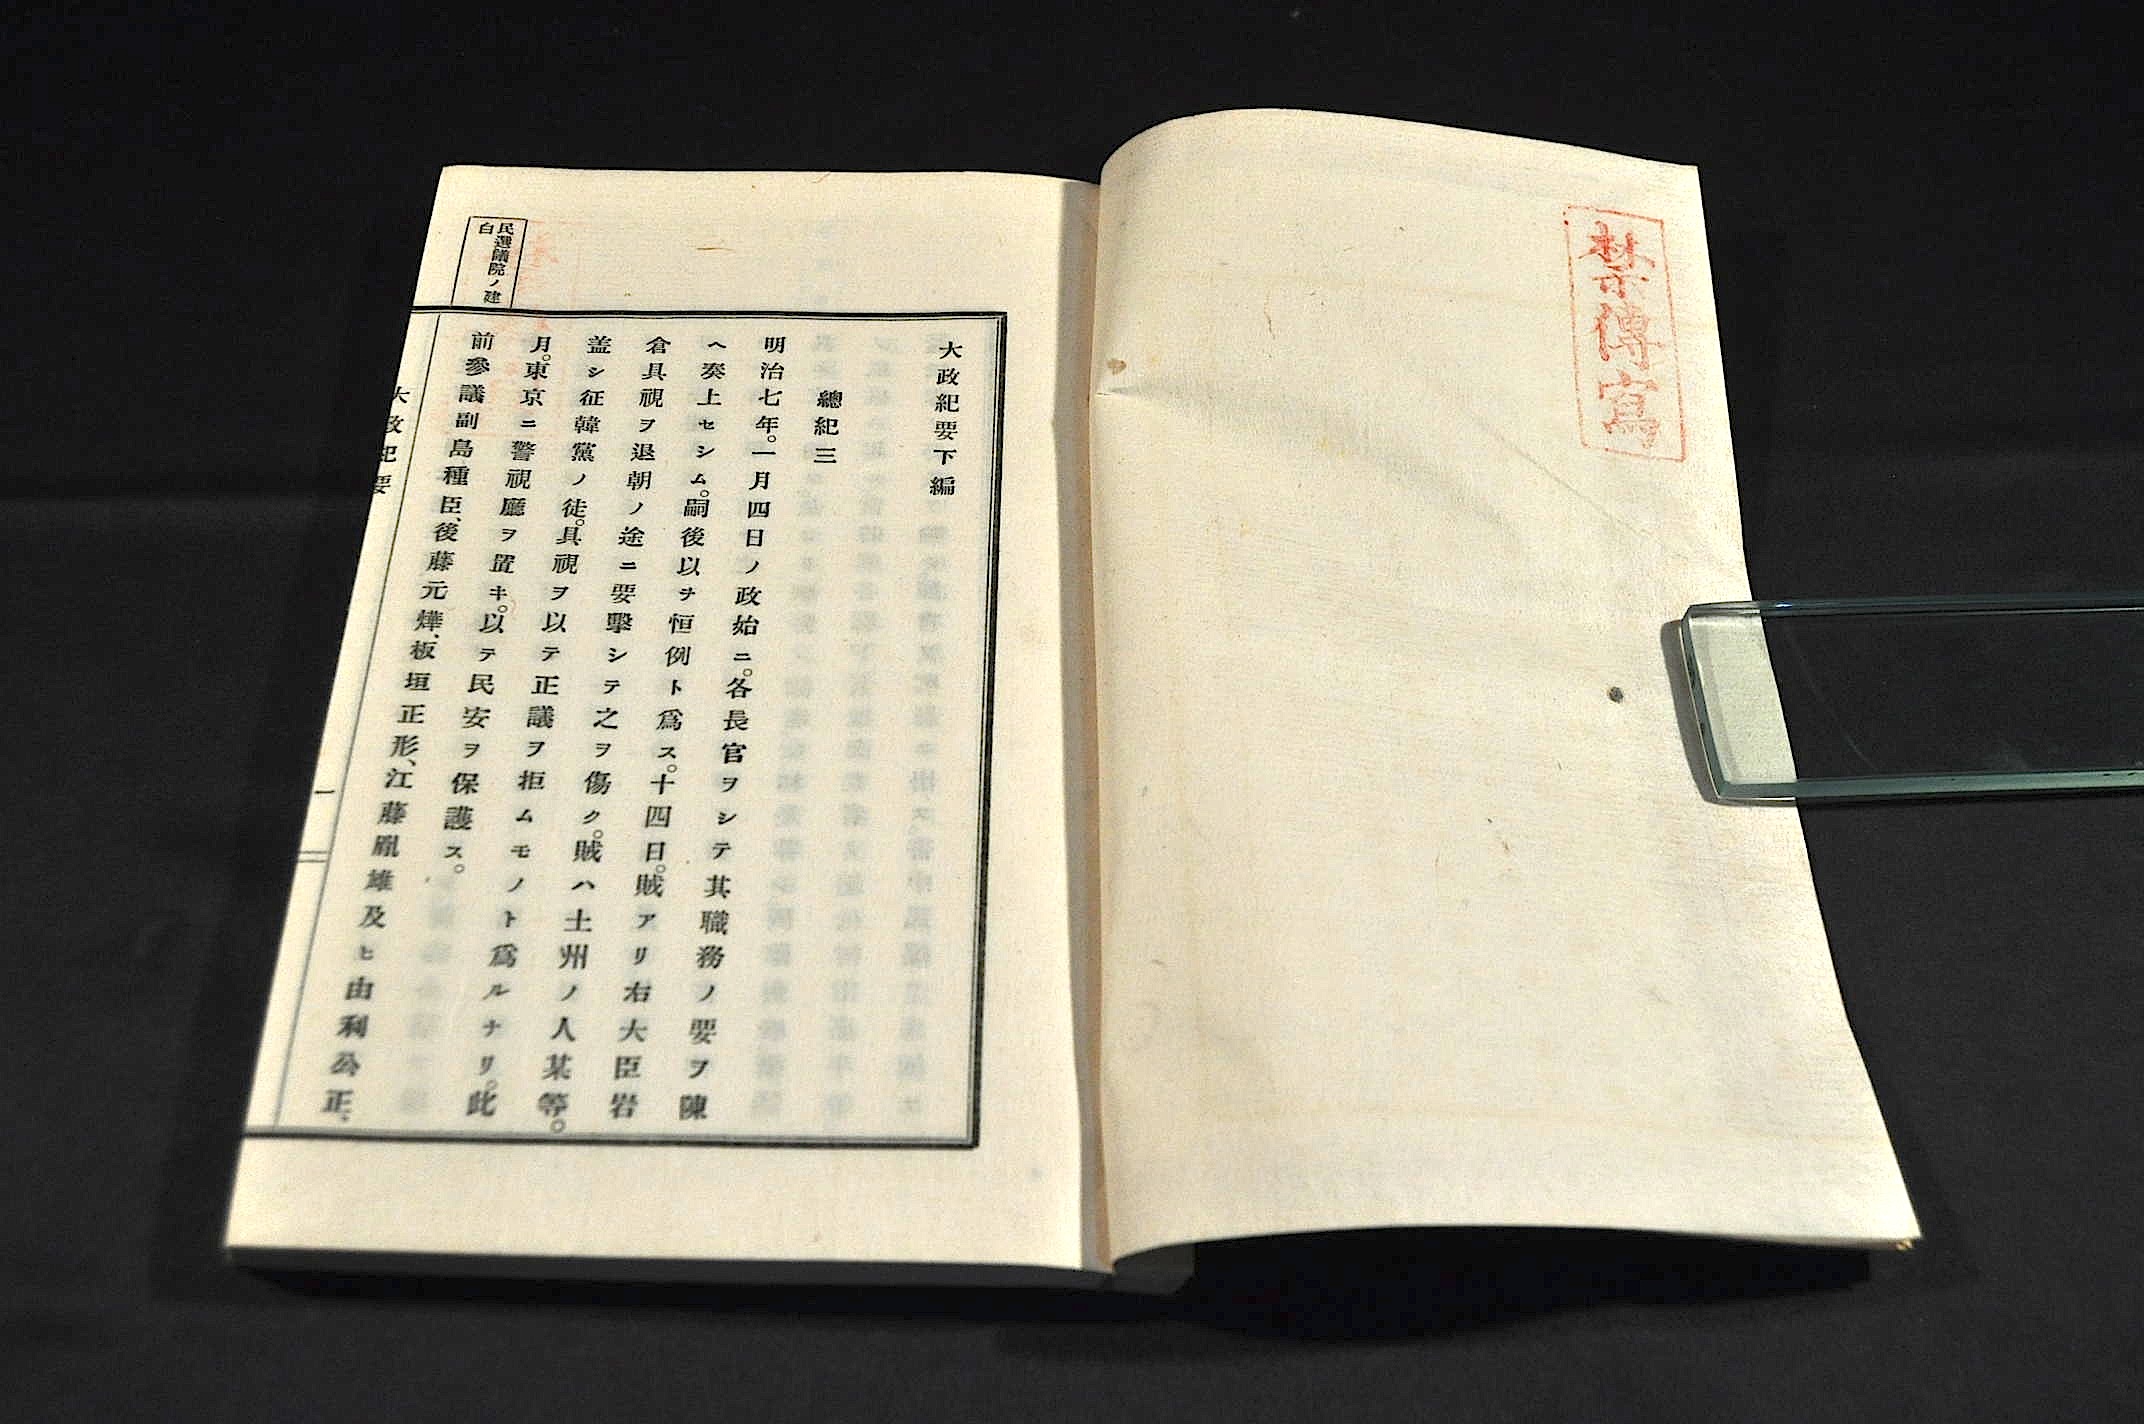 禁傳寫
大政紀要下編
總紀三
明治七年。一月四日ノ政始ニ。各長官ヲシテ其職務ノ要ヲ陳
ヘ奏上セシム。嗣後以テ恒例ト爲ス。十四日。賊アリ右大臣岩
倉具視ヲ退朝ノ途ニ要擊シテ之ヲ傷ク。賊ハ土州ノ人某等。
蓋シ征韓黨ノ徒。具視ヲ以テ正議ヲ拒ムモノト爲ルナリ。此
月。東京ニ警視廳ヲ置キ。以テ民安ヲ保護ス。
前參議副島種臣、後藤元燁、板垣正形、江藤胤雄及ヒ由利公正、
民選議院ノ建
白
大政紀要
一